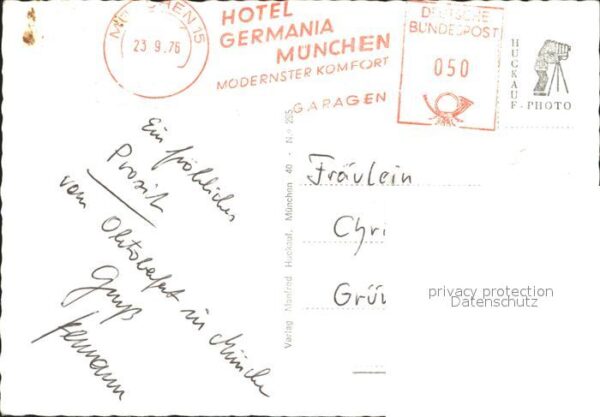 MÜNCHEN 15
23.9.76
HOTEL
GERMANIA
MÜNCHEN
MODERNSTER KOMFORT
GARAGEN
DEUTSCHE
BUNDESPOST
050
HUCKAUF - PHOTO
Ein fröhliches
Prosit
vom Oktoberfest in München
Gruß
Hermann
Verlag Manfred Huckauf, München 40 - N.º 265
Fräulein
Chri
Grün
privacy protection
Datenschutz